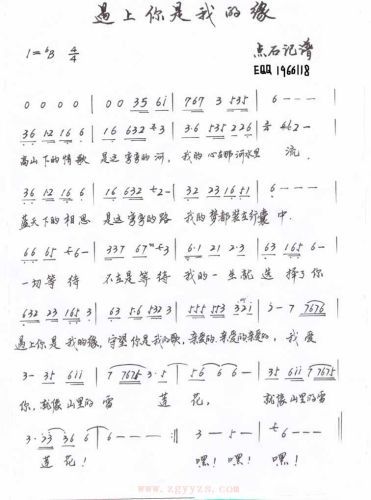 遇上你是我的缘
1=♭B 4/4 点石记谱
EQQ 1966118
0 0 0 0 | 0 0 35 61 | 767 3 535 | 6 - - - |
36 12 16 6 | 16 632 3 | 3·6 535 226 | 462 -
高山下的情歌 是这弯弯的河, 我的心在那河水里 流.
36 12 16 6 | 16 632 2 - | 32 23 16 51 | 6 - - - |
蓝天下的相思 是这弯弯的路 我的梦都装在行囊 中.
66 65 6 - | 337 67 3 | 6·1 21 2·3 | 63 165 6 - |
一切等待 不在是等待 我的一生就 选择了你
632 23 165 3 | 63 56 532 3 | 555 553 321 | 2 - 7 7676 |
遇上你是我的缘, 守望你是我的歌, 亲爱的亲爱的亲爱的, 我爱
3 - 35 611 | 7 7675 3·5 | 56 6 6 - | 35 611 7 7675 |
你, 就像山里的雪 莲花, 就像山里的雪
3·23 36 6 | 6 - - - :‖ 3 - 5 - | 6 - - - |
莲花! 嘿! 嘿! 嘿!
www.zgyyzs.com